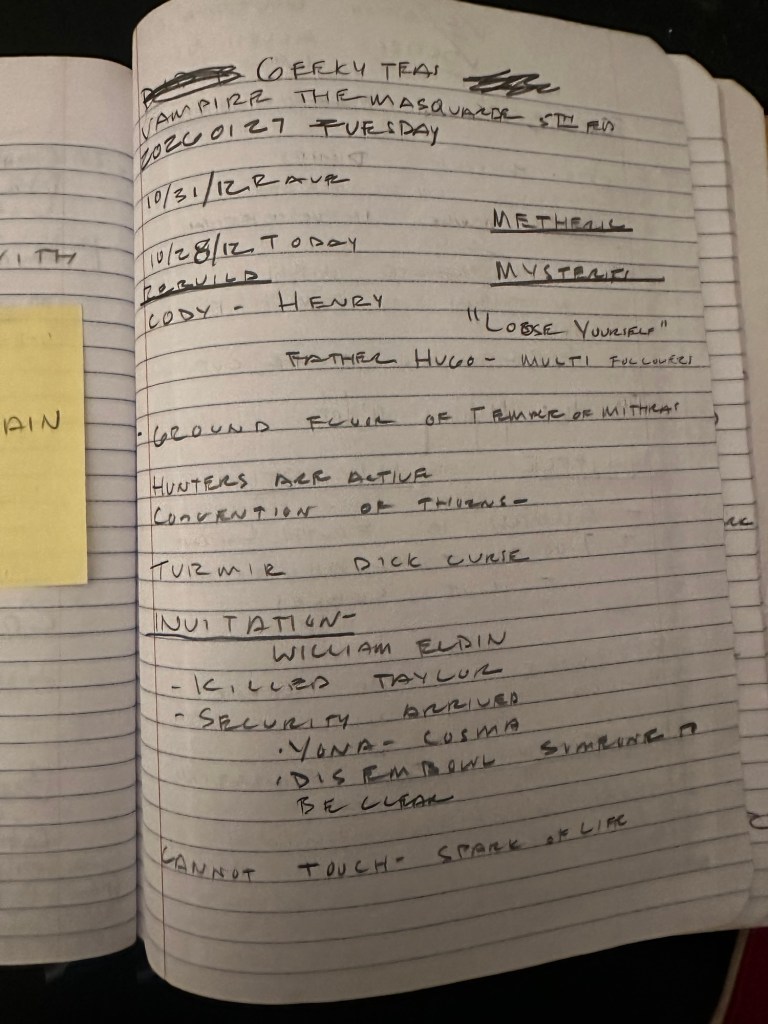 GEEKY TEAS
VAMPIRE THE MASQUARDE 5TH ED
20260127 TUESDAY
10/31/12 RAVE
METHERIC
10/28/12 TODAY
REBUILD
MYSTERY
CODY - HENRY
"LOOSE YOURSELF"
FATHER HUGO - MULTI FOLLOWERS
· GROUND FLOOR OF TEMPLE OF MITHRAS
HUNTERS ARE ACTIVE
CONVENTION OF THORNS -
TURMIR DICK CURSE
INVITATION -
WILLIAM ELDIN
- KILLED TAYLOR
- SECURITY ARRIVED
· YONA - COSMA
· DISEMBOWL SOMEONE
BE CLEAR
CANNOT TOUCH - SPARK OF LIFE
ITH
AIN